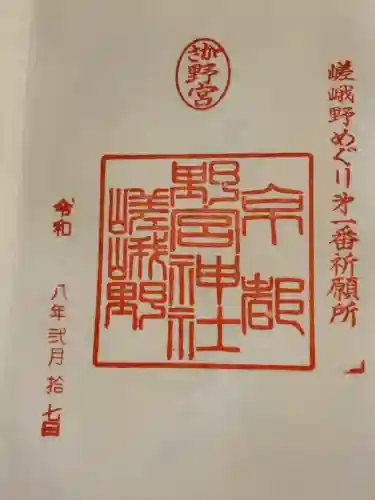 嵯峨野めぐり第一番祈願所
さが
野宮
京都
野宮神社
嵯峨野
令和 八年 弐月 拾七日